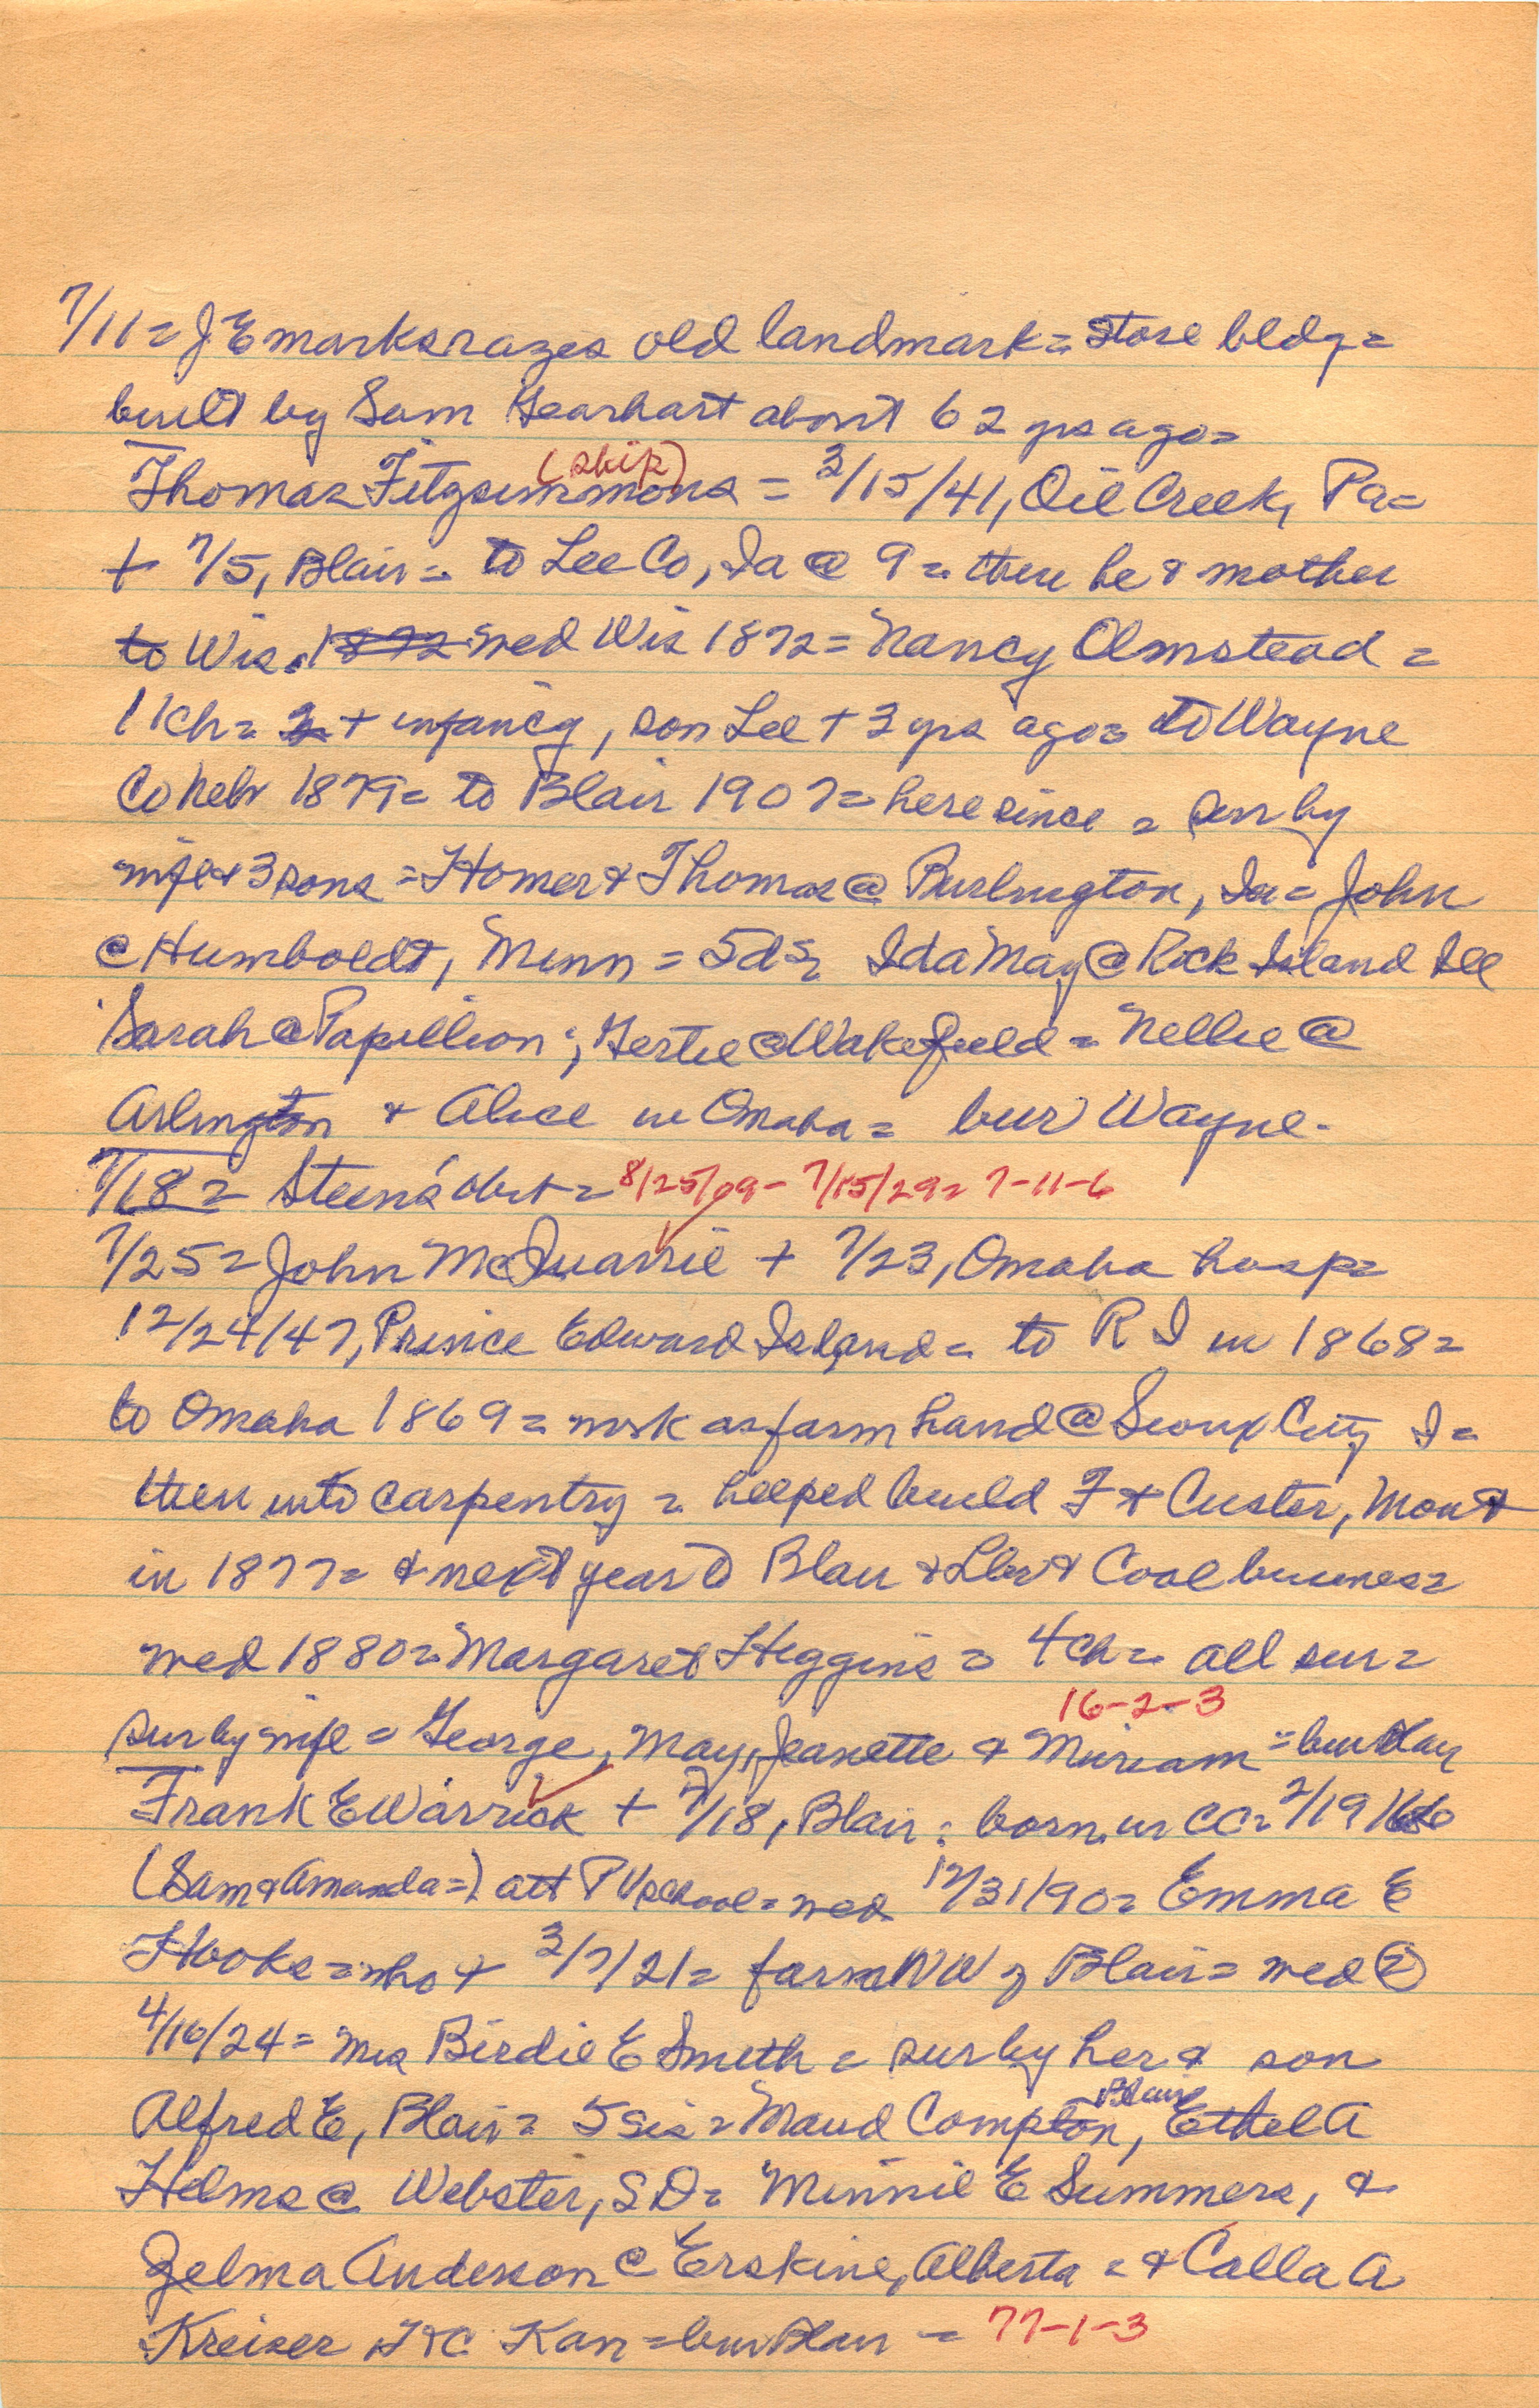 7/11= J E Marks razes old landmark= store bldg=
built by Sam Gearhart about 62 yrs ago=
(skip)
Thomas Fitzsimmons = 3/15/41, Oil Creek, Pa=
+ 7/5, Blair= to Lee Co, Ia @ 9= then he & mother
to Wis. 1872 wed Wis 1872= Nancy Olmstead =
11ch= 2 + infancy, son Lee + 3 yrs ago= to Wayne
Co Nebr 1879= to Blair 1907= here since = sur by
wife & 3 sons = Homer & Thomas @ Burlington, Ia= John
@ Humboldt, Minn = 5ds= Ida May @ Rock Island Ill
Sarah @ Papillion; Gertie @ Wakefield = Nellie @
Arlington & Alice in Omaha= bur Wayne-
7/18= Steen's obit= 8/25/09- 7/15/29= 7-11-6
7/25= John McQuarrie + 7/23, Omaha hosp=
12/24/47, Prince Edward Island= to R I in 1868=
to Omaha 1869= work as farm hand @ Sioux City I=
then into carpentry = helped build Ft Custer, Mont
in 1877= & next year to Blair & Lbr & Coal business=
wed 1880= Margaret Higgins = 4ch= all sur=
16-2-3
sur by wife = George, May, Jeanette & Miriam = bur Blair
Frank E Warrick + 7/18, Blair: born in CC= 2/19/66
(Sam & Amanda=) att PV school= wed 12/31/90= Emma E
Hooke= who + 3/7/21= farm NW of Blair= wed ②
4/10/24= Mrs Birdie E Smith = sur by her & son
Blair
Alfred E, Blair= 5 sis= Maud Compton, Ethel A
Helms @ Webster, SD= Minnie E Summers, &
Zelma Anderson @ Erskine, Alberta = & Calla A
Kreiser Kan = bur Blair = 77-1-3